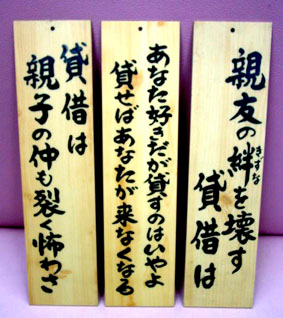 親友の絆を壊す
きずな
貸借は
あなた好きだが貸すのはいやよ
貸せばあなたが来なくなる
貸借は
親子の仲も裂く怖わさ